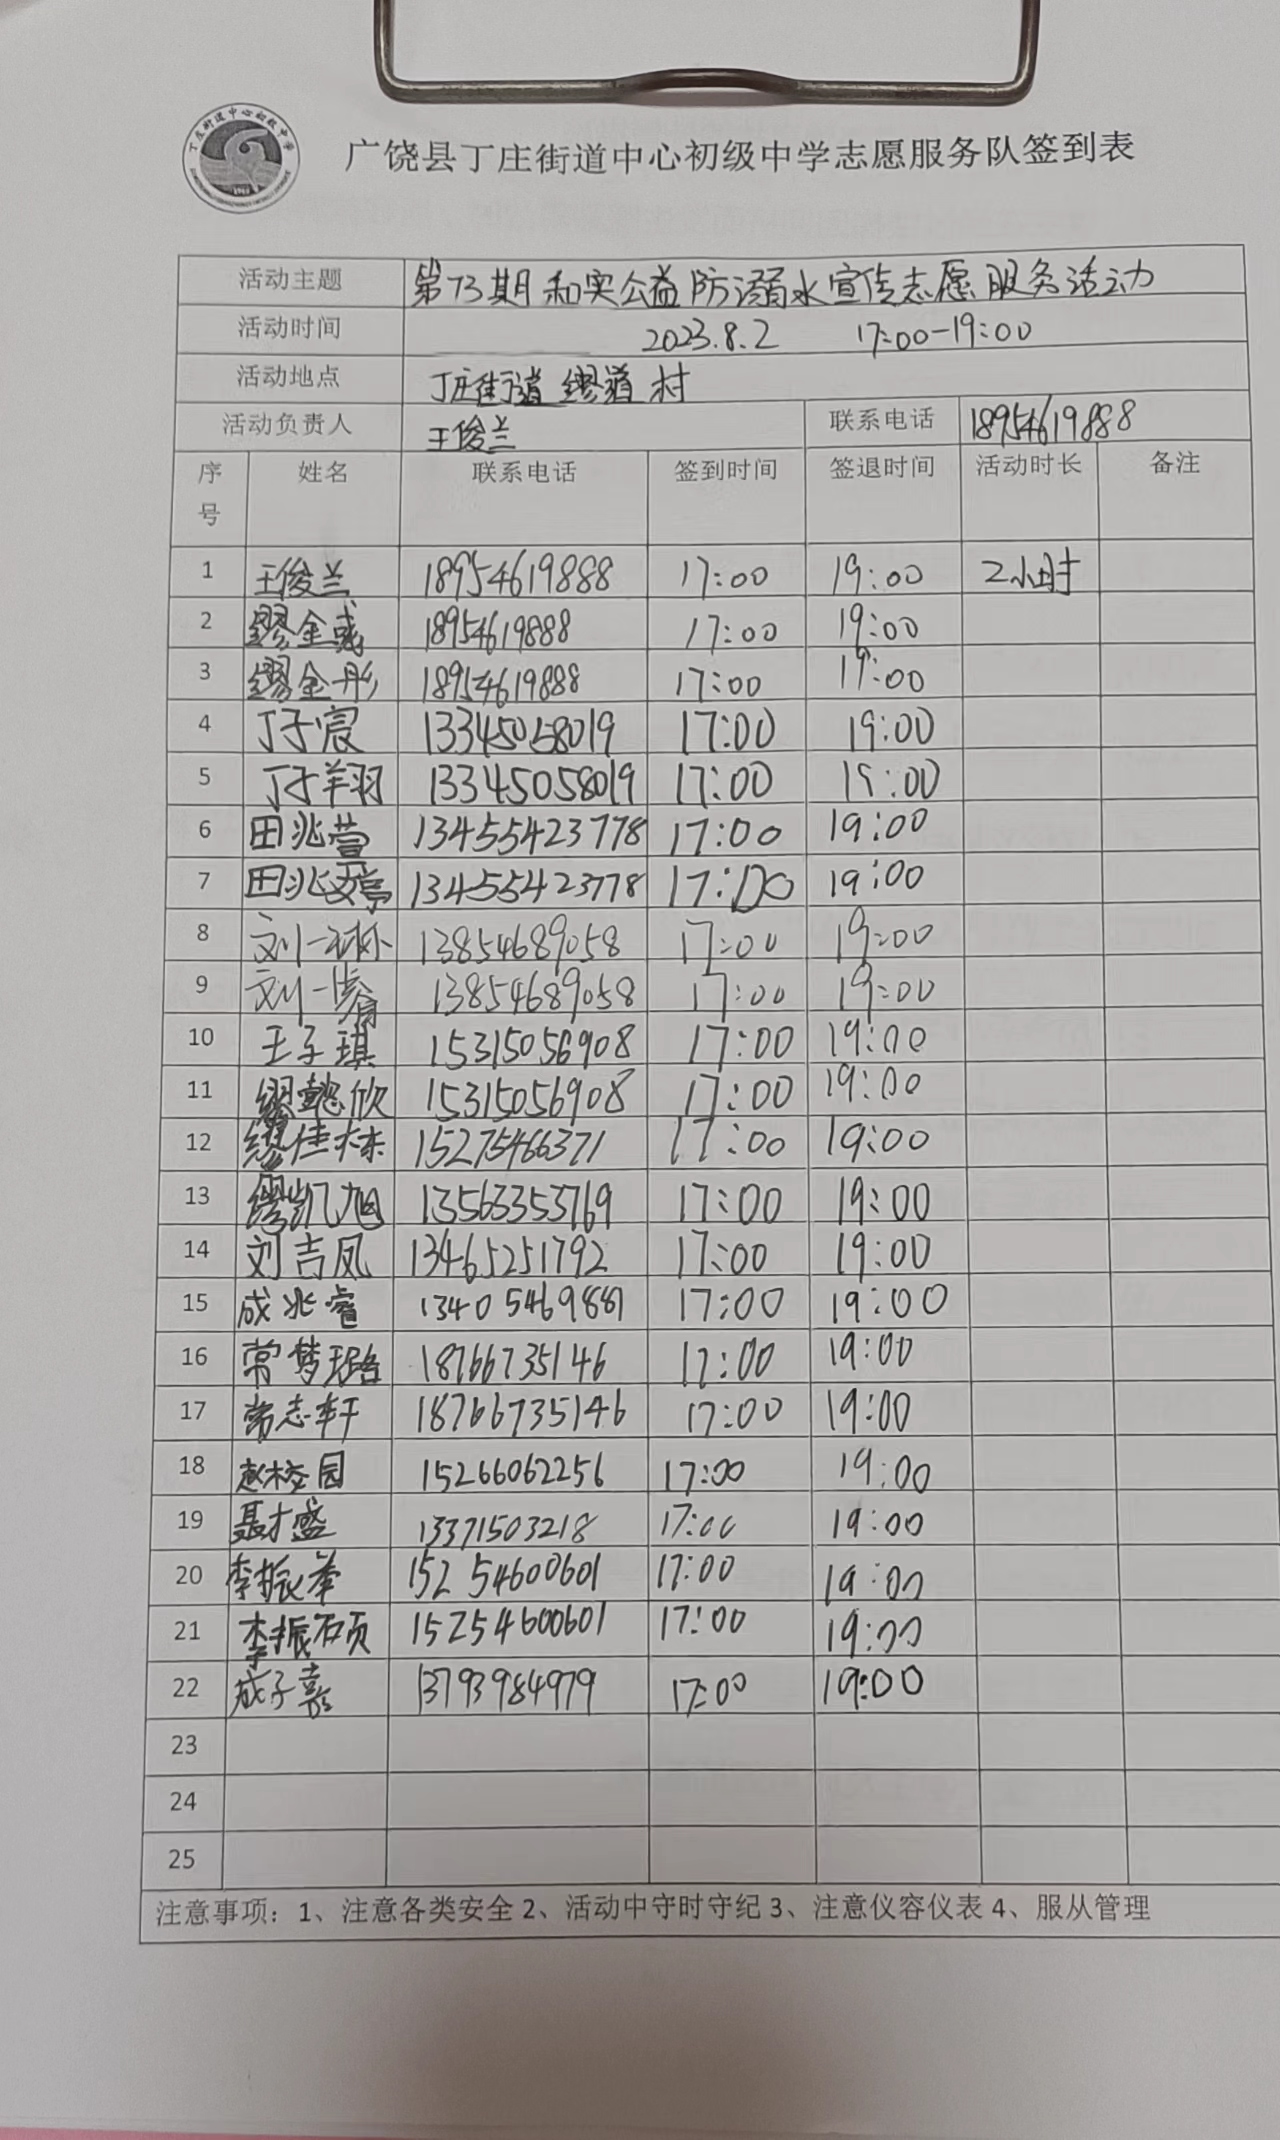 丁庄街道中心初级中学
广饶县丁庄街道中心初级中学志愿服务队签到表
活动主题 第73期和实公益防溺水宣传志愿服务活动
活动时间 2023.8.2 17:00-19:00
活动地点 丁庄街道缪道村
活动负责人 王俊兰 联系电话 18954619888
序号 姓名 联系电话 签到时间 签退时间 活动时长 备注
1 王俊兰 18954619888 17:00 19:00 2小时
2 缪金彧 18954619888 17:00 19:00
3 缪金彤 18954619888 17:00 19:00
4 丁子宸 13345058019 17:00 19:00
5 丁子羊羽 13345058019 17:00 19:00
6 田兆萱 13455423778 17:00 19:00
7 田兆婷 13455423778 17:00 19:00
8 刘一 13854689058 17:00 19:00
9 刘一 13854689058 17:00 19:00
10 王子琪 15315056908 17:00 19:00
11 缪懿欣 15315056908 17:00 19:00
12 缪佳栋 15275466371 17:00 19:00
13 缪凯旭 13563353769 17:00 19:00
14 刘吉凤 13465251792 17:00 19:00
15 成兆睿 13405469881 17:00 19:00
16 常梦璐 18766735146 17:00 19:00
17 常志轩 18766735146 17:00 19:00
18 赵校园 15266062256 17:00 19:00
19 聂才盛 13371503218 17:00 19:00
20 李振 15254600601 17:00 19:00
21 李振硕 15254600601 17:00 19:00
22 成子嘉 13793984979 17:00 19:00
23
24
25
注意事项：1、注意各类安全 2、活动中守时守纪 3、注意仪容仪表 4、服从管理